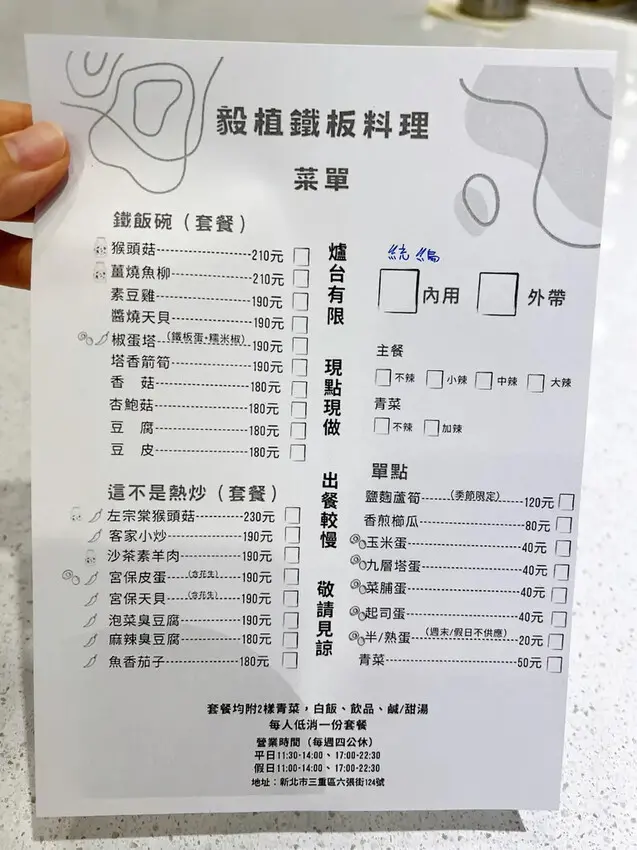 毅植鐵板料理
菜單
鐵飯碗（套餐）
猴頭菇------210元
薑燒魚柳------210元
素豆雞------190元
醬燒天貝------190元
椒蛋塔（鐵板蛋+糯米椒）190元
塔香箭筍------190元
香 菇------180元
杏鮑菇------180元
豆 腐------180元
豆 皮------180元
這不是熱炒（套餐）
左宗棠猴頭菇------230元
客家小炒------190元
沙茶素羊肉------190元
宮保皮蛋--（含花生）--190元
宮保天貝--（含花生）--190元
泡菜臭豆腐------190元
麻辣臭豆腐------190元
魚香茄子------180元
爐台有限 現點現做 出餐較慢 敬請見諒
統編
內用 外帶
主餐
不辣 小辣 中辣 大辣
青菜
不辣 加辣
單點
鹽麴蘆筍---（季節限定）---120元
香煎櫛瓜------80元
玉米蛋------40元
九層塔蛋------40元
菜脯蛋------40元
起司蛋------40元
半/熟蛋--（週末/假日不供應）20元
青菜------50元
套餐均附2樣青菜，白飯、飲品、鹹/甜湯
每人低消一份套餐
營業時間（每週四公休）
平日11:30-14:00、17:00-22:30
假日11:00-14:00、17:00-22:30
地址：新北市三重區六張街124號